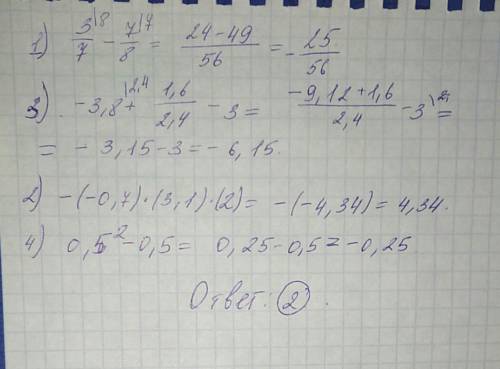 1) 3\8/7 - 7\7/8 = 24-49/56 = -25/56
3) -3,8\2,4 + 1,6/2,4 - 3 = -9,12+1,6/2,4 - 3\2 =
= -3,15-3=-6,15.
2) -(-0,7)·(3,1)·(2)= -(-4,34)=4,34.
4) 0,5²-0,5= 0,25-0,5=-0,25
Ответ: 2.